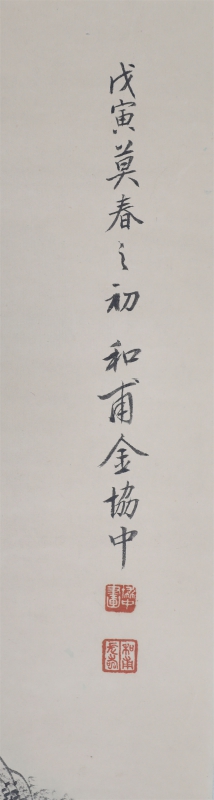 戊寅莫春之初 和甫金協中